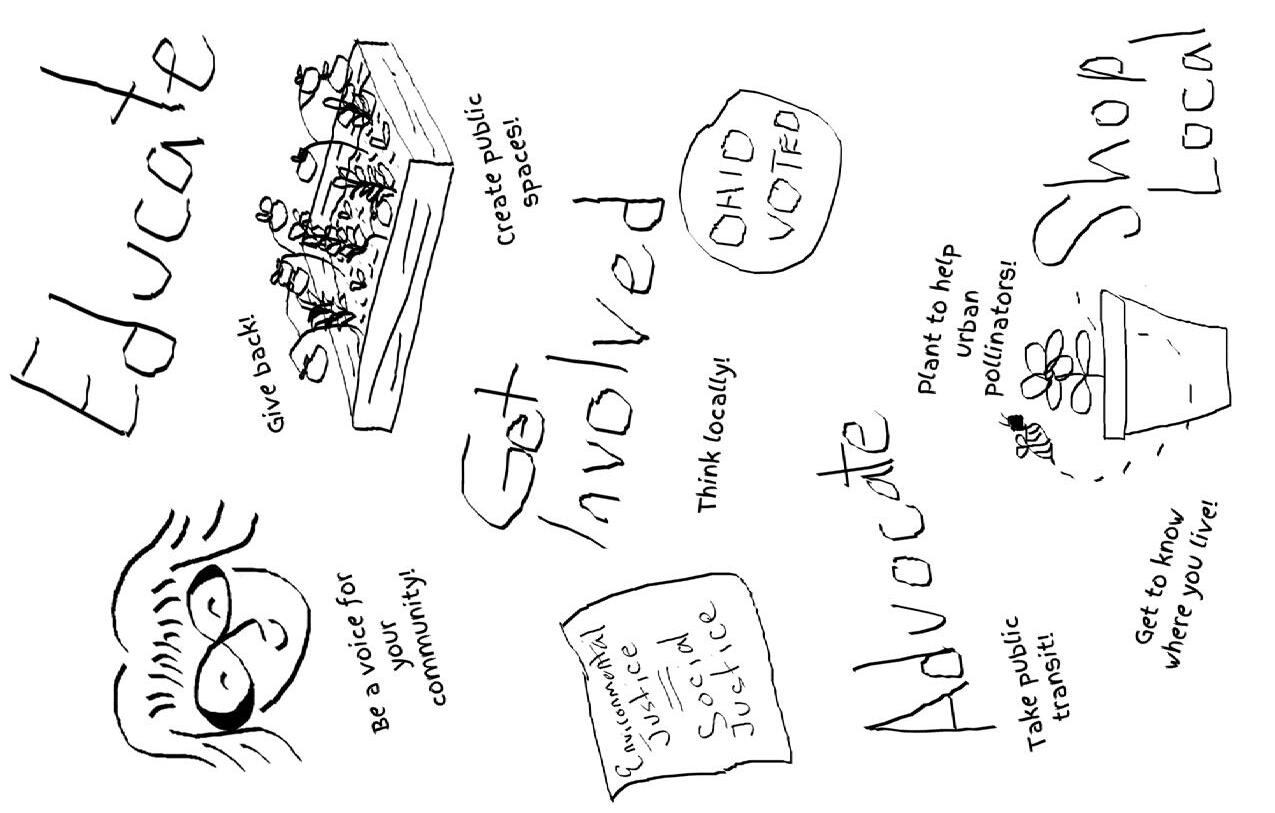 Educate
Give back!
Be a voice for
your
community!
Create public
spaces!
Get
Involved
OHIO
VOTED
Think locally!
Environmental
Justice
=
Social
Justice
Advocate
Plant to help
urban
pollinators!
Shop
Local
Take public
transit!
Get to know
where you live!